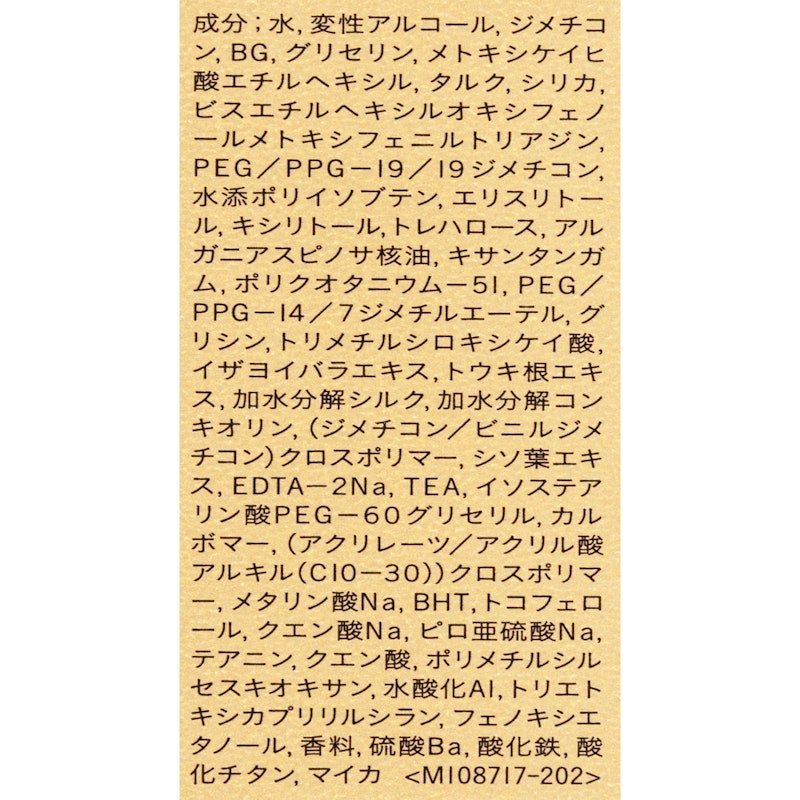 成分；水, 変性アルコール, ジメチコ
ン, BG, グリセリン, メトキシケイヒ
酸エチルヘキシル, タルク, シリカ,
ビスエチルヘキシルオキシフェノ
ールメトキシフェニルトリアジン,
PEG／PPG－19／19ジメチコン,
水添ポリイソブテン, エリスリトー
ル, キシリトール, トレハロース, アル
ガニアスピノサ核油, キサンタンガ
ム, ポリクオタニウム－51, PEG／
PPG－14／7ジメチルエーテル, グ
リシン, トリメチルシロキシケイ酸,
イザヨイバラエキス, トウキ根エキ
ス, 加水分解シルク, 加水分解コン
キオリン, (ジメチコン／ビニルジメ
チコン)クロスポリマー, シソ葉エキ
ス, EDTA－2Na, TEA, イソステア
リン酸PEG－60グリセリル, カル
ボマー, (アクリレーツ／アクリル酸
アルキル(C10－30))クロスポリマ
ー, メタリン酸Na, BHT, トコフェロ
ール, クエン酸Na, ピロ亜硫酸Na,
テアニン, クエン酸, ポリメチルシル
セスキオキサン, 水酸化Al, トリエト
キシカプリリルシラン, フェノキシエ
タノール, 香料, 硫酸Ba, 酸化鉄, 酸
化チタン, マイカ <M108717-202>